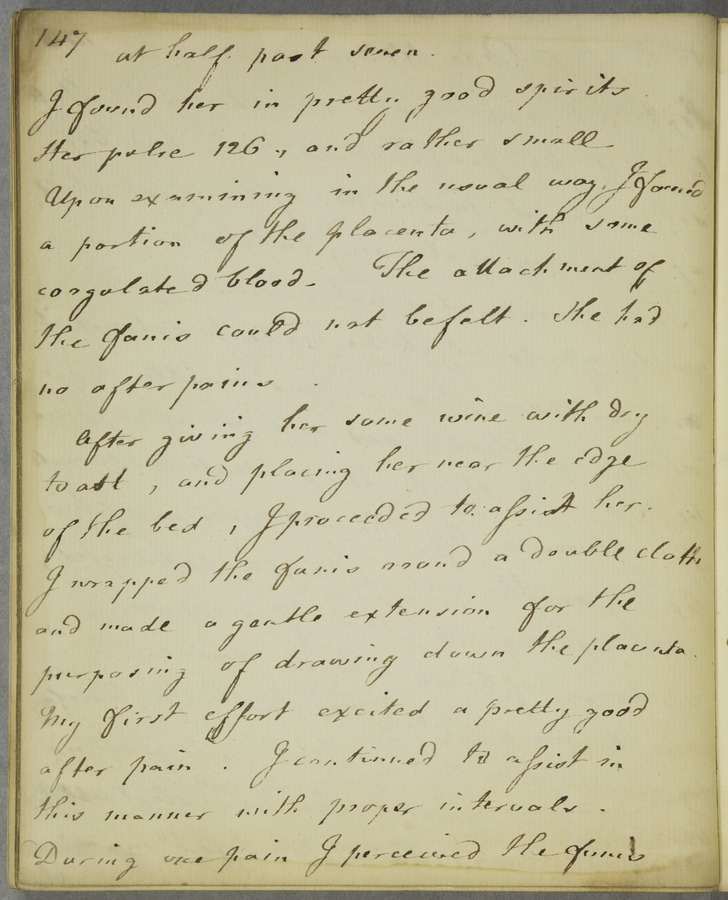 147
at half past seven.
I found her in pretty good spirits
Her pulse 126, and rather small
Upon examining in the usual way, I found
a portion of the placenta, with some
coagulated blood. The attachment of
the funis could not be felt. She had
no after pains.
After giving her some wine with dry
toast, and placing her near the edge
of the bed, I proceeded to assist her.
I wrapped the funis round a double cloth
and made a gentle extension for the
purposing of drawing down the placenta.
My first effort excited a pretty good
after pain. I continued to assist in
this manner with proper intervals.
During one pain I perceived the funis